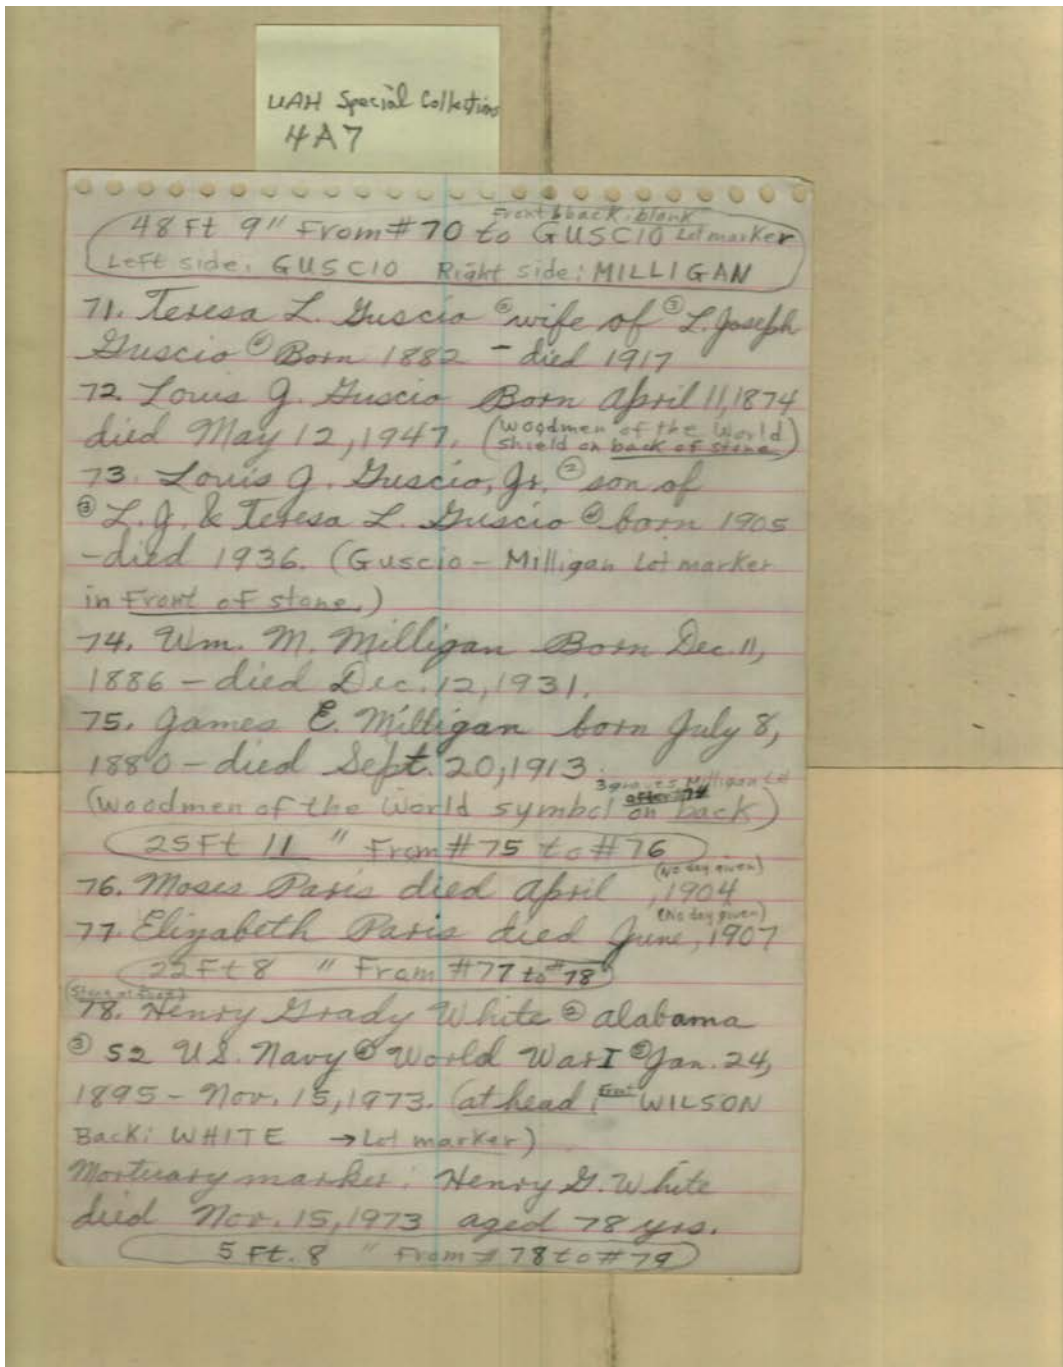 UAH Special Collections
4A7
Front & back: blank
48 Ft 9" From #70 to GUSCIO Lot marker
Left side: GUSCIO Right side: MILLIGAN
71. Teresa L. Guscio ② wife of ③ L. Joseph
Guscio ④ Born 1882 - died 1917
72. Louis J. Guscio Born April 11, 1874
died May 12, 1947. (Woodmen of the World
shield on back of stone)
73. Louis J. Guscio, Jr. ② son of
③ L. J. & Teresa L. Guscio ④ born 1905
-died 1936. (Guscio - Milligan Lot marker
in Front of stone.)
74. Wm. M. Milligan Born Dec. 11,
1886 - died Dec. 12, 1931.
75. James E. Milligan born July 8,
1880 - died Sept. 20, 1913.
3 graves Milligan Lot
(Woodmen of the World symbol on back)
25 Ft 11 " From #75 to #76
(No day given)
76. Moses Paris died April , 1904
(No day given)
77. Elizabeth Paris died June, 1907
22 Ft 8 " From #77 to #78
78. Henry Grady White ② Alabama
③ S2 U.S. Navy ④ World War I ⑤ Jan. 24,
1895 - Nov. 15, 1973. (at head: Front WILSON
Back: WHITE → Lot marker)
Mortuary marker: Henry G. White
died Nov. 15, 1973 aged 78 yrs.
5 Ft. 8 " From #78 to #79